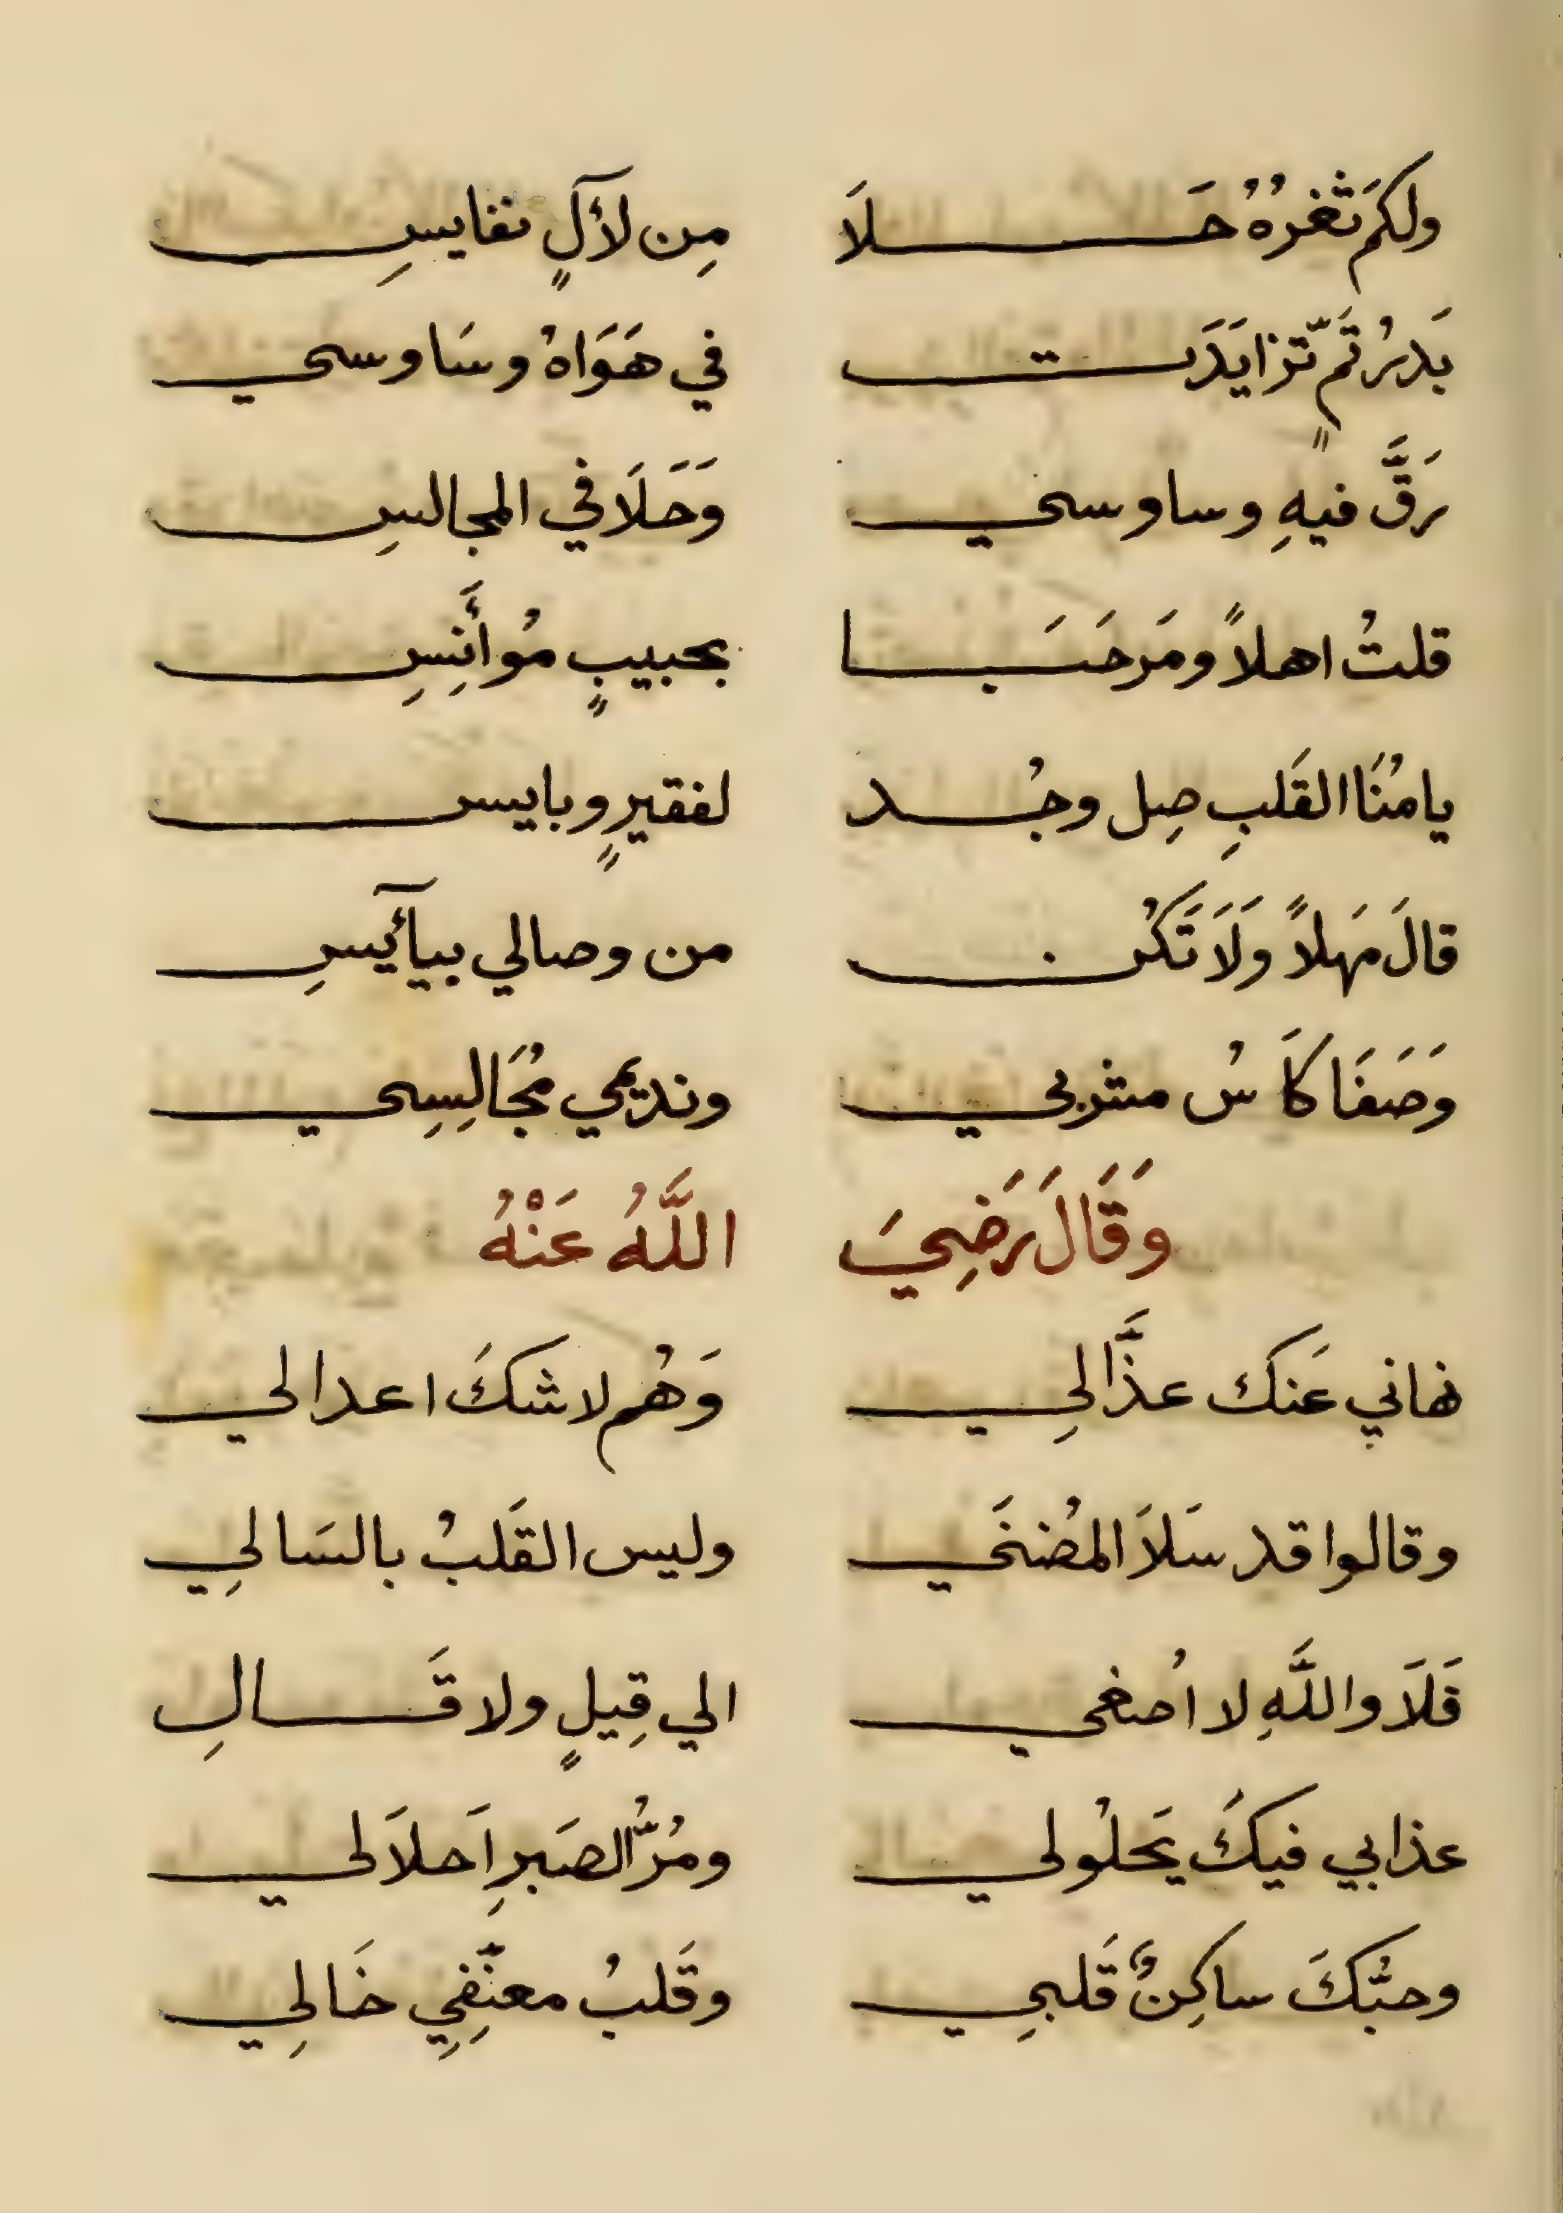 ولكَم ثغرُهُ حَلَا مِن لآلٍ نفايسِ
بَدرُ تَمٍّ تزايَدَت في هَوَاهُ وسَاوسي
رَقَّ فيهِ وساوسي وَحَلَا في المجالسِ
قلتُ اهلاً ومَرحَبَا بحبيبٍ مُوأَنِسِ
يا مُنَا القَلبِ صِل وجُد لفقيرٍ وبايس
قالَ مَهلاً وَلَا تَكُن من وصالي بيآئيسِ
وَصَفَا كاَسُ مشربي ونديمي مُجَالِسِي
وَقَالَ رَضِيَ اللَّهُ عَنْهُ
نهاني عَنك عذَّالِي وَهُم لا شكَ اعدالي
وقالوا قد سَلَا المُضنَي وليس القَلبُ بالسَالِي
فَلَا واللَّهِ لا اُصغي الي قِيلٍ ولا قَالِ
عذابي فيكَ يَحلُولي ومُرُّ الصَبرِ اَحلَالي
وحبُّكَ ساكِنٌ قَلبِي وقَلبُ معنِّفِي خَالِي